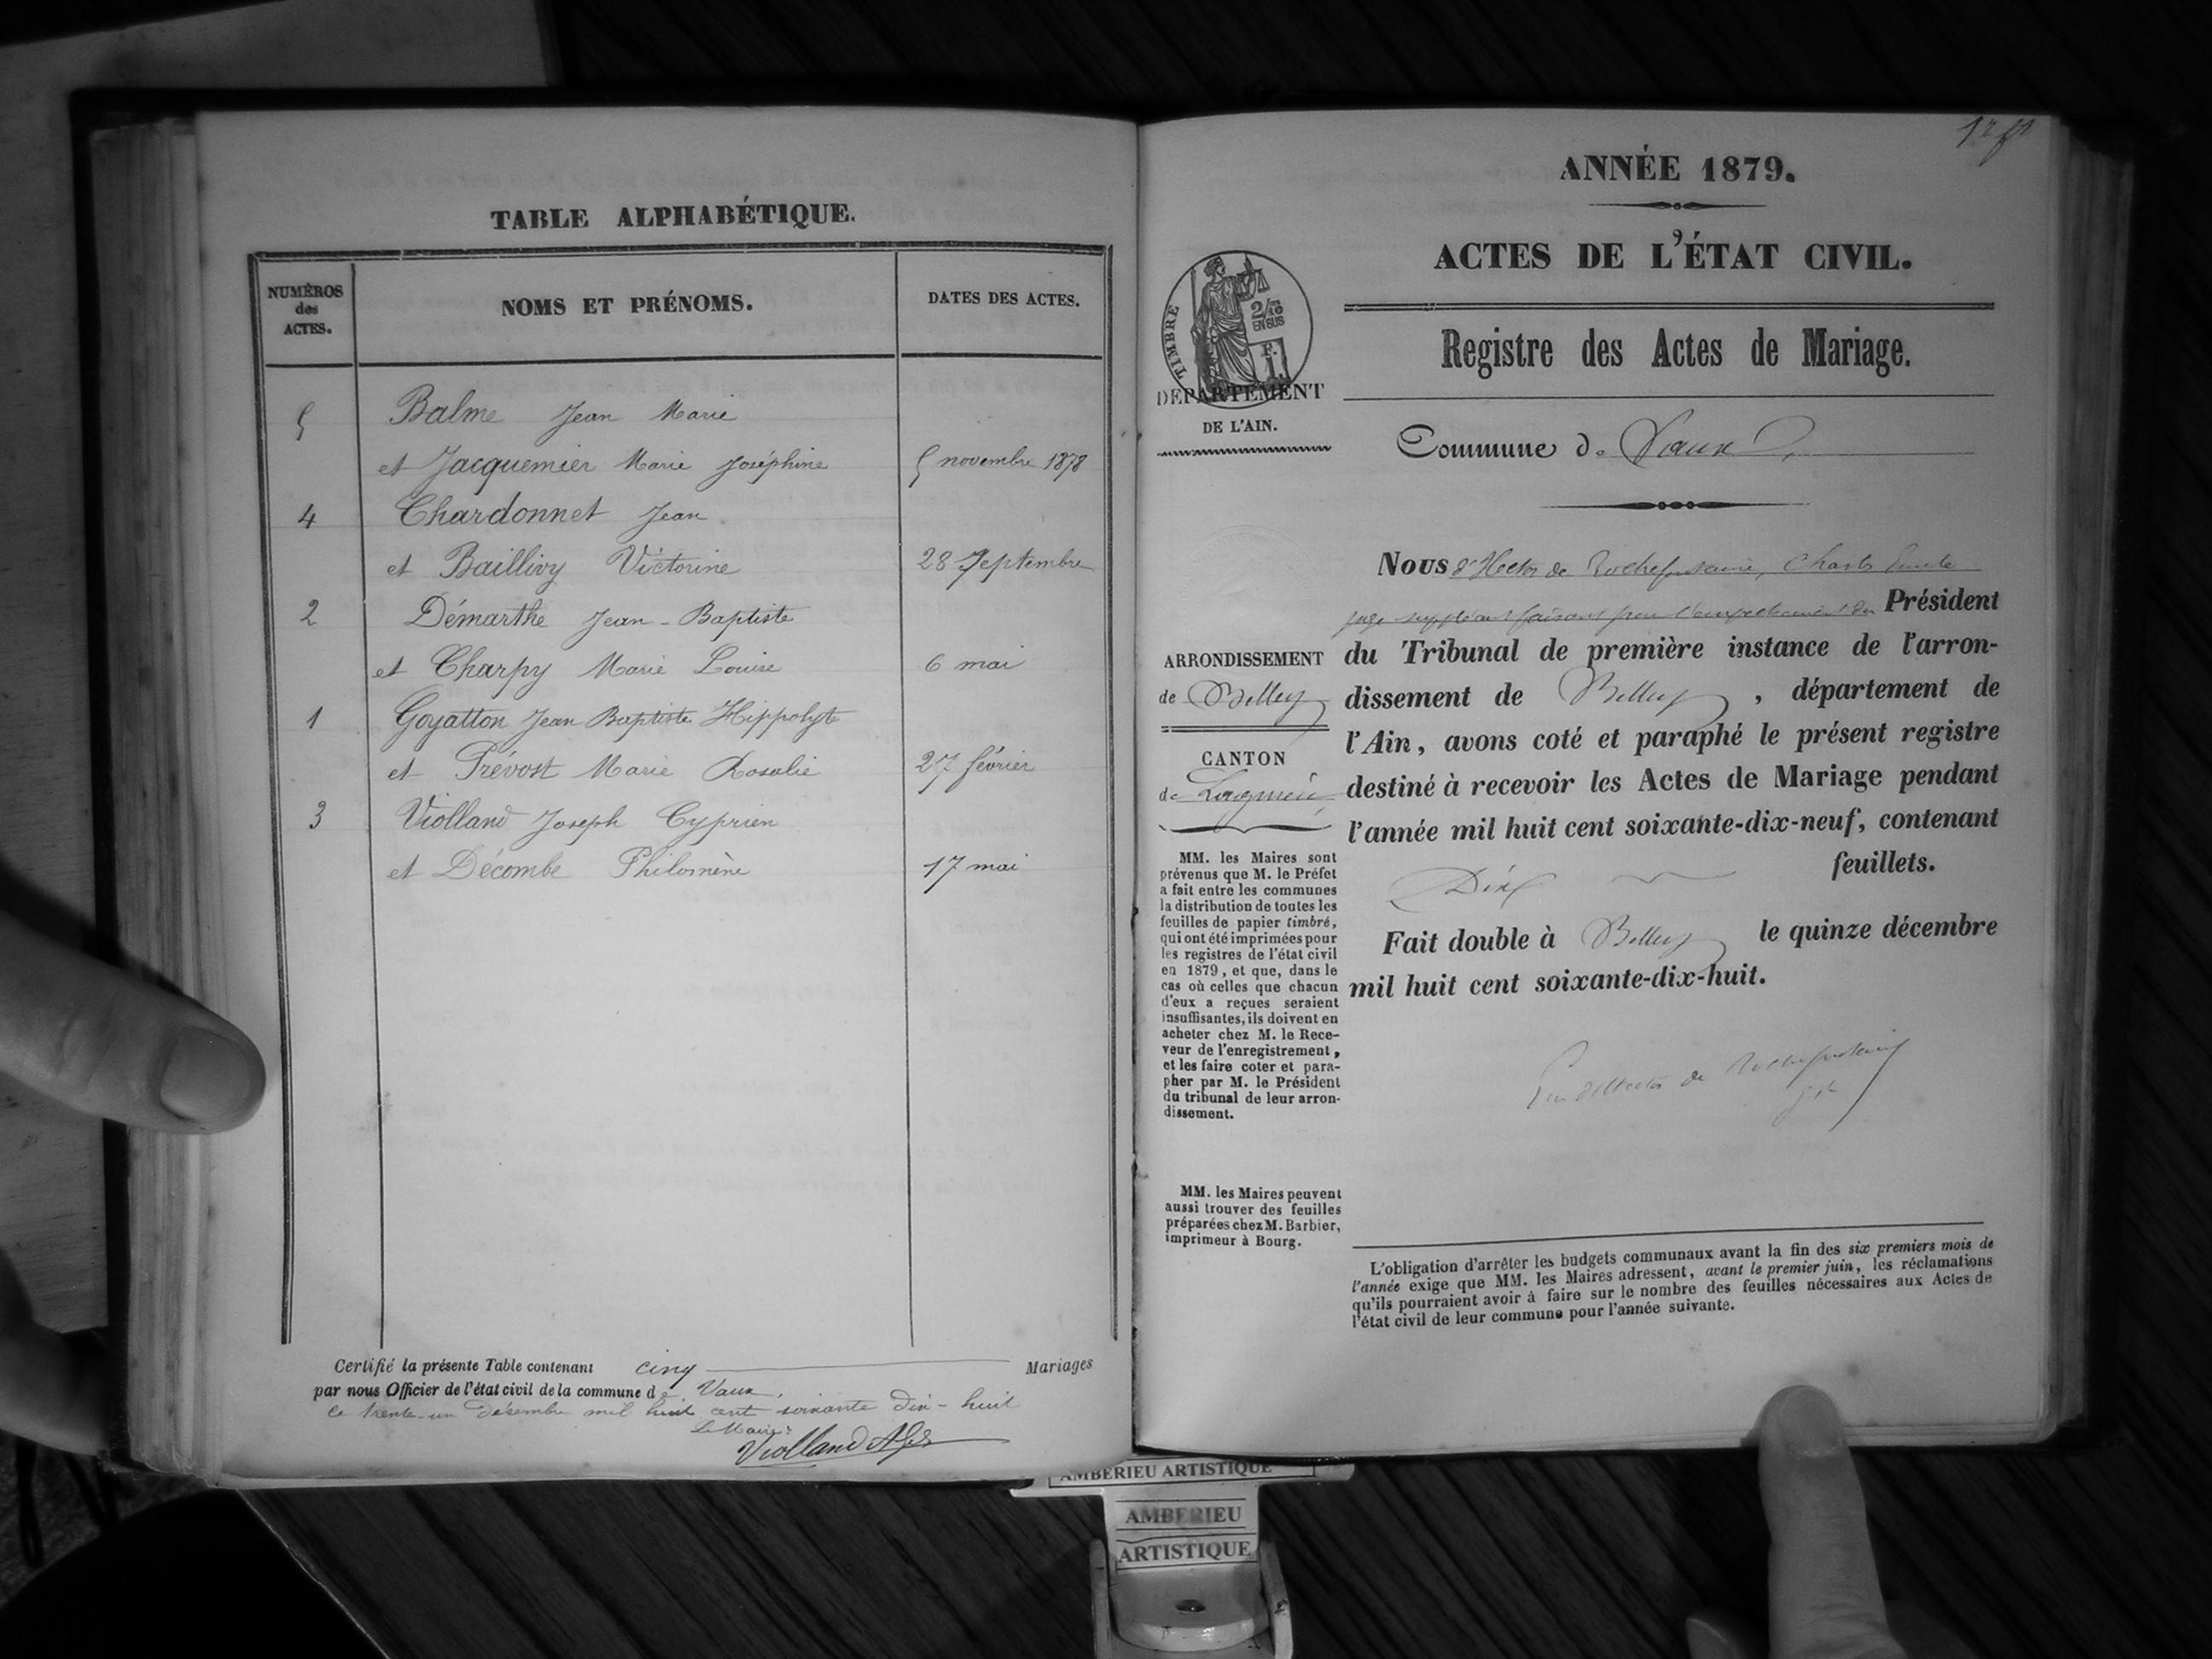 TABLE ALPHABÉTIQUE.
NUMÉROS
des
ACTES.
NOMS ET PRÉNOMS.
DATES DES ACTES.
5 Balme Jean Marie
et Jacquemier Marie Joséphine 5 novembre 1878
4 Chardonnet Jean
et Baillivy Victorine 28 Septembre
2 Démarthe Jean-Baptiste
et Charpy Marie Louise 6 mai
1 Goyatton Jean Baptiste Hippolyte
et Prévost Marie Rosalie 27 février
3 Violland Joseph Cyprien
et Décombe Philomène 17 mai
Certifié la présente Table contenant cinq Mariages
par nous Officier de l'état civil de la commune de Vaux,
ce trente-un décembre mil huit cent soixante dix-huit
Le Maire:
Violland
ANNÉE 1879.
ACTES DE L'ÉTAT CIVIL.
Registre des Actes de Mariage.
TIMBRE
2/10
EN SUS
F.
1
DÉPARTEMENT
DE L'AIN.
Commune de Vaux
ARRONDISSEMENT
de Belley
CANTON
de Lagnieu
MM. les Maires sont
prévenus que M. le Préfet
a fait entre les communes
la distribution de toutes les
feuilles de papier timbré,
qui ont été imprimées pour
les registres de l'état civil
en 1879, et que, dans le
cas où celles que chacun
d'eux a reçues seraient
insuffisantes, ils doivent en
acheter chez M. le Rece-
veur de l'enregistrement,
et les faire coter et para-
pher par M. le Président
du tribunal de leur arron-
dissement.
MM. les Maires peuvent
aussi trouver des feuilles
préparées chez M. Barbier,
imprimeur à Bourg.
Nous d'Hector de Rochefontaine, Charles
juge suppléant faisant pour l'empêchement du Président
du Tribunal de première instance de l'arron-
dissement de Belley, département de
l'Ain, avons coté et paraphé le présent registre
destiné à recevoir les Actes de Mariage pendant
l'année mil huit cent soixante-dix-neuf, contenant
Dix feuillets.
Fait double à Belley le quinze décembre
mil huit cent soixante-dix-huit.
d'Hector de Rochefontaine
L'obligation d'arrêter les budgets communaux avant la fin des six premiers mois de
l'année exige que MM. les Maires adressent, avant le premier juin, les réclamations
qu'ils pourraient avoir à faire sur le nombre des feuilles nécessaires aux Actes de
l'état civil de leur commune pour l'année suivante.
AMBERIEU ARTISTIQUE
AMBERIEU
ARTISTIQUE